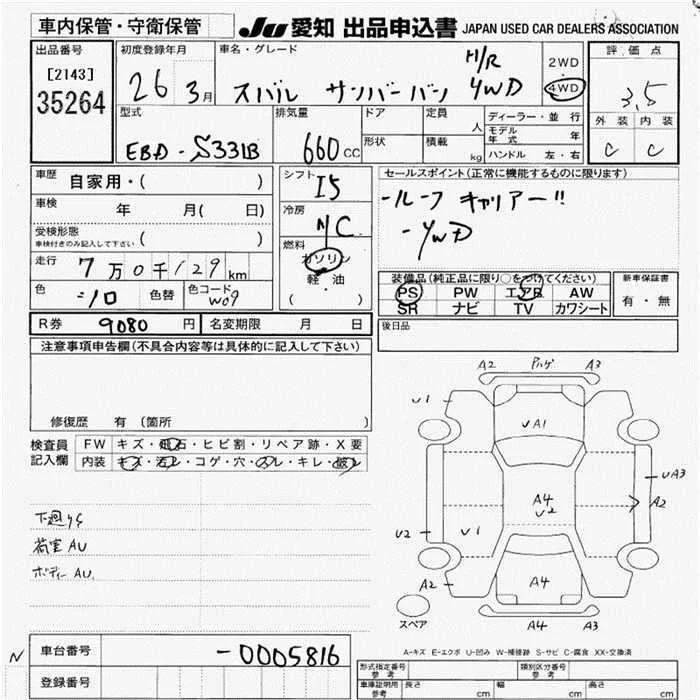 車内保管・守衛保管
JU 愛知 出品申込書 JAPAN USED CAR DEALERS ASSOCIATION
出品番号
[2143]
35264
初度登録年月
26 3月
車名・グレード
スバル サンバーバン
H/R
4WD
2WD
4WD
評価点
3,5
外装 内装
C C
型式
EBD-S331B
排気量
660cc
ドア
形状
定員
人
積載
kg
ディーラー・並行
モデル年式 年
ハンドル 左・右
車歴 自家用・( )
車検 年 月( 日)
受検形態
車検付きのみ記入して下さい ( )
走行 7万0千129km
色 シロ 色替
色コード W09
シフト I5
冷房 A/C
燃料
ガソリン
軽・油
( ・ )
セールスポイント(正常に機能するものに限ります)
-ルーフキャリアー!!
-4WD
装備品(純正品に限り○をつけてください)
PS PW エアB AW
SR ナビ TV カワシート
新車保証書
有・無
R券 9080円 名変期限 月 日
後日品
注意事項申告欄(不具合内容等は具体的に記入して下さい)
修復歴 有 (箇所 )
検査員
記入欄
FW キズ・飛石・ヒビ割・リペア跡・X要
内装 キズ・汚レ・コゲ・穴・スレ・キレ・破レ
下廻りS
荷室AU
ボディーAU.
A2 ハゲ A3
U1
UA1
UA3
A2
A4
U2
U2
U1
A2
A4
スペア
A4 A3
A-キズ E-エクボ U-凹み W-補修跡 S-サビ C-腐食 XX-交換済
N
車台番号 -0005816
登録番号
形式指定番号
参考
類別区分番号
参考
車庫証明用
参考
長さ cm 幅 cm 高さ cm